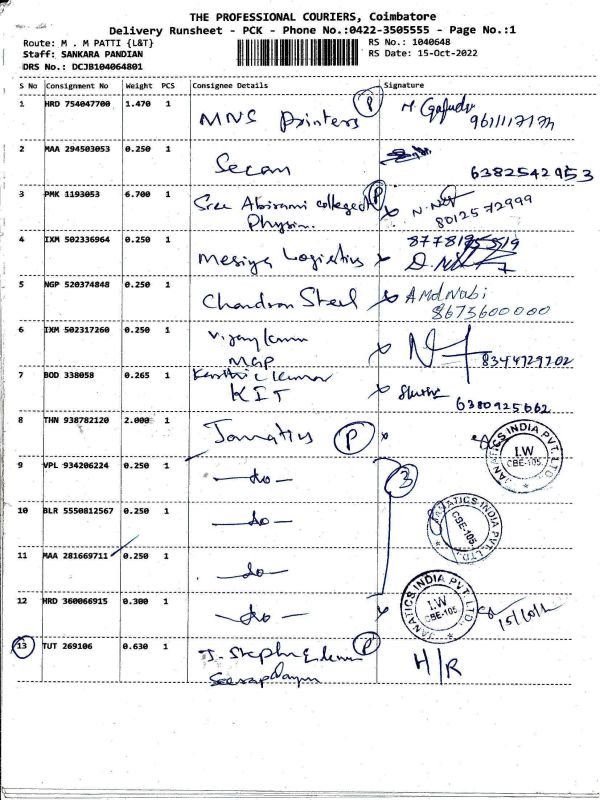 THE PROFESSIONAL COURIERS, Coimbatore
Delivery Runsheet - PCK - Phone No.:0422-3505555 - Page No.:1
Route: M . M PATTI {L&T}
RS No.: 1040648
Staff: SANKARA PANDIAN
RS Date: 15-Oct-2022
DRS No.: DCJB104064801
S No Consignment No Weight PCS Consignee Details Signature
1 HRD 754047700 1.470 1 MNS Printers P
2 MAA 294503053 0.250 1 Secan 6382542953
3 PMK 1193053 6.700 1 Sree Abirami college of P
Physio. 8012572999
4 IXM 502336964 0.250 1 Logistics
5 NGP 520374848 0.250 1 Chandran Steel A Md Nabi
8673600000
6 IXM 502317260 0.250 1 Vijay 8344729702
MGP
7 BOD 338058 0.265 1 Karthick kumar
KIT 6380925662
8 THN 938782120 2.000 1 Janatics P
JANATICS INDIA PVT. LTD. I.W CBE-105.
9 VPL 934206224 0.250 1 — do — 3
10 BLR 5550812567 0.250 1 — do —
JANATICS INDIA PVT. LTD. CBE-105.
11 MAA 281669711 0.250 1 — do —
12 HRD 360066915 0.300 1 — do —
JANATICS INDIA PVT. LTD. I.W CBE-105
13 TUT 269106 0.630 1 J. P H/R